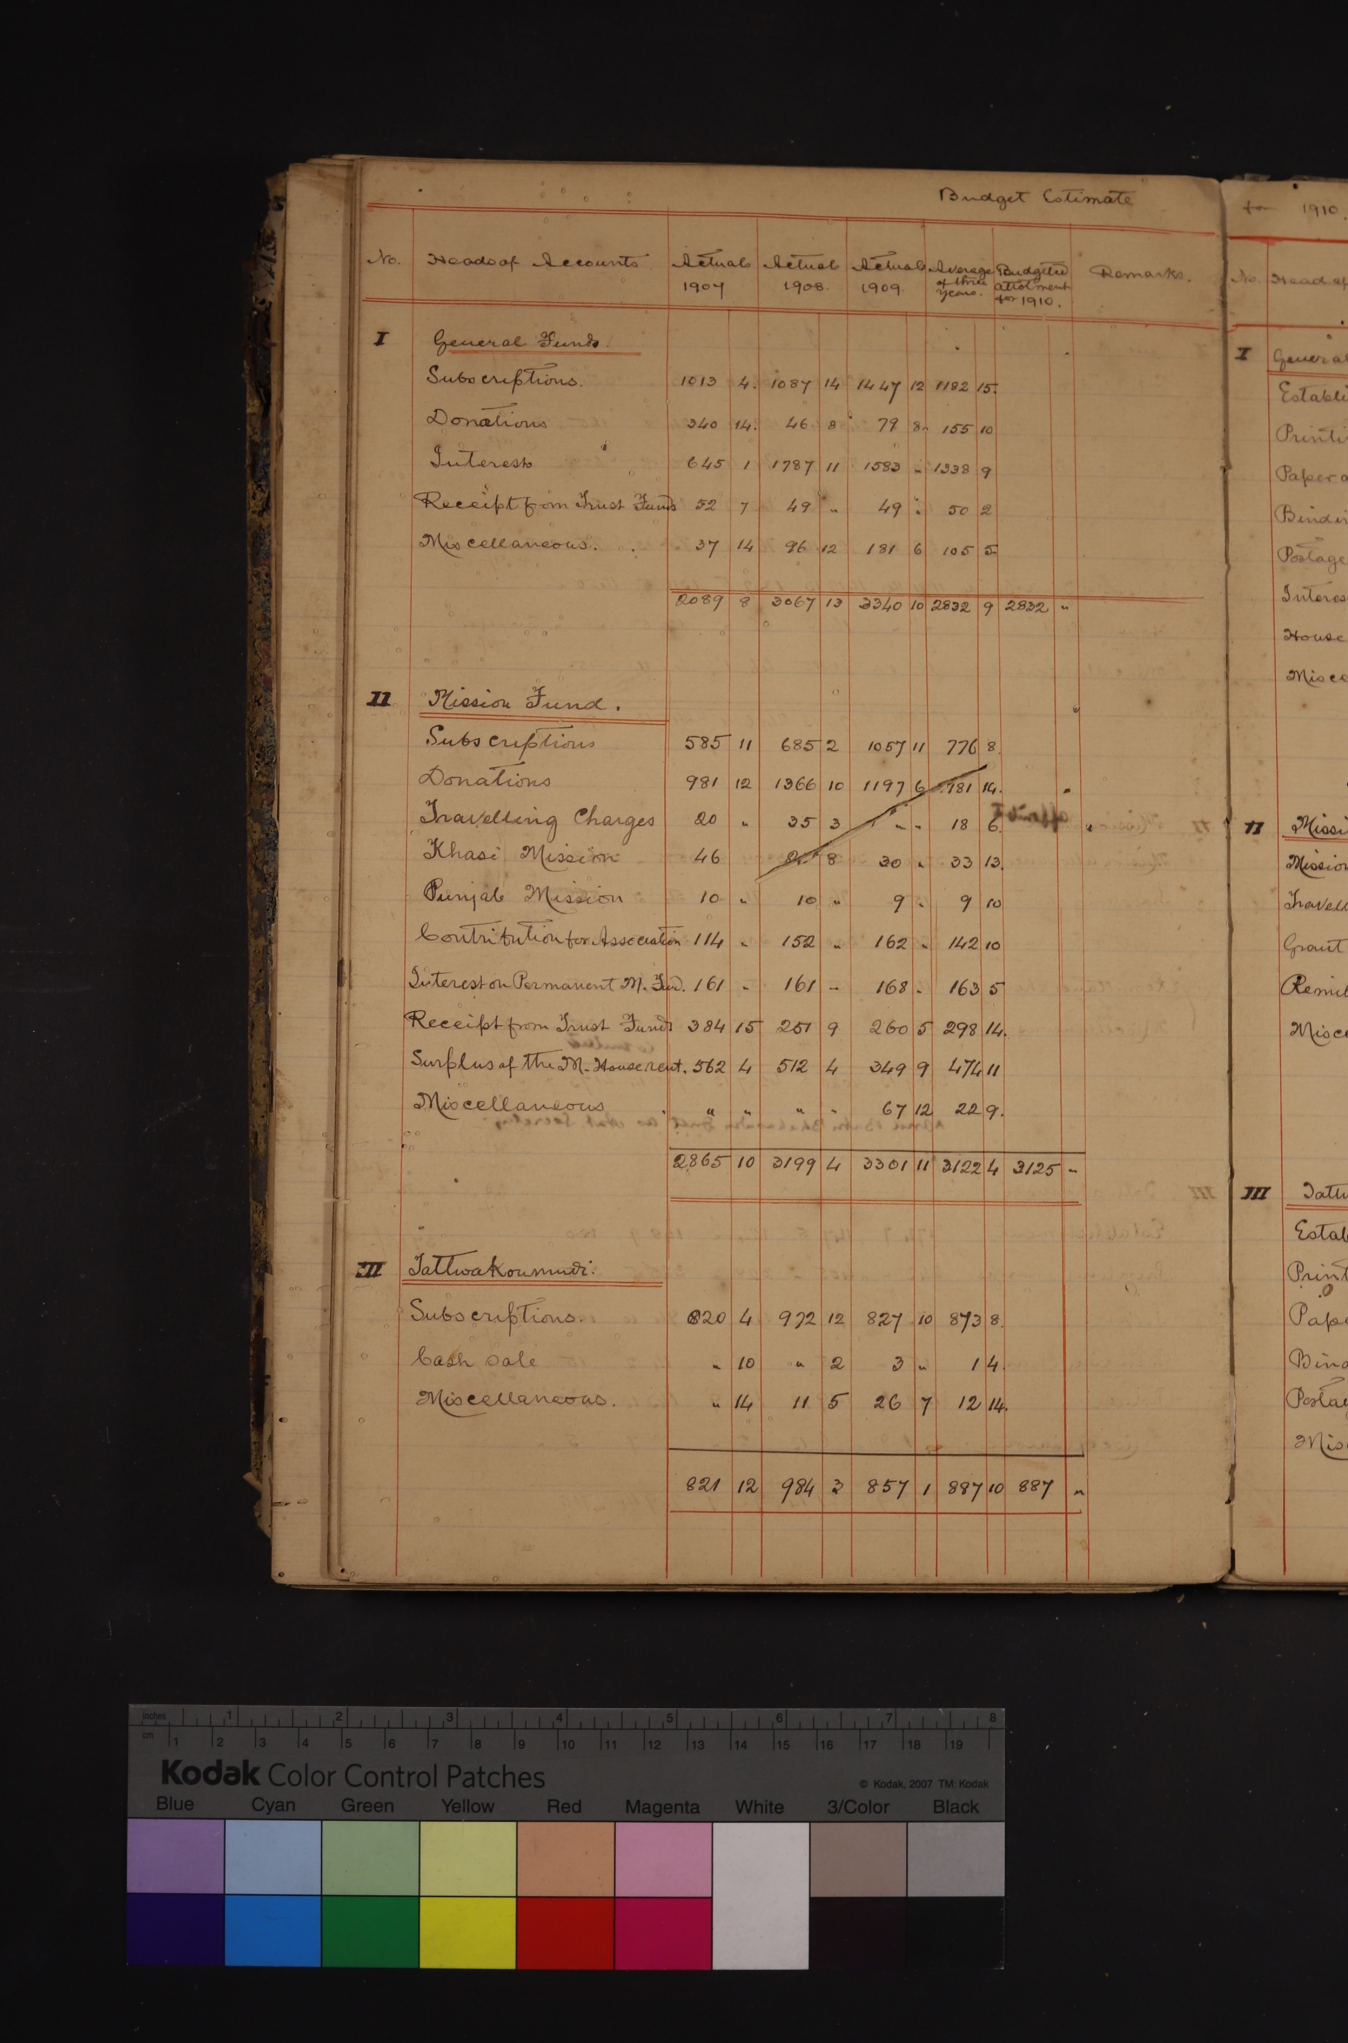 Budget Estimate
No. Heads of Accounts Actuals 1907 Actual 1908. Actuals 1909 Average of three years. Budgeted allotment for 1910. Remarks.
I General Funds.
Subscriptions. 1013 4. 1087 14 1447 12 1182 15.
Donations 340 14. 46 8 79 8 155 10
Interests 645 1 1787 11 1583 " 1338 9
Receipt from Trust Funds 52 7 49 " 49 " 50 2
Miscellaneous. 37 14 96 12 181 6 105 5
2089 8 3067 13 3340 10 2832 9 2832 "
II Mission Fund.
Subscriptions 585 11 685 2 1057 11 776 8.
Donations 981 12 1366 10 1197 6 981 14.
Travelling Charges 20 " 35 3 " " 18 6.
Khasi Mission 46 8 30 " 33 13.
Punjab Mission 10 " 10 " 9 " 9 10
Contribution for Association 114 " 152 " 162 " 142 10
Interest on Permanent M. Fund. 161 " 161 " 168 " 163 5
Receipt from Trust Funds 384 15 251 9 260 5 298 14.
Surplus of the M. House rent. 562 4 512 4 349 9 474 11
Miscellaneous " " " " 67 12 22 9.
2865 10 3199 4 3301 11 3122 4 3125 "
III Tattwakoumudi.
Subscriptions. 820 4 972 12 827 10 873 8.
Cash sale " 10 " 2 3 " 1 4.
Miscellaneous. " 14 11 5 26 7 12 14.
821 12 984 3 857 1 887 10 887 "
for 1910.
No. Head of
I General
Establi
Printi
Paper a
Bindin
Postage
Interes
House
Misce
II Missi
Mission
Travell
Grant
Remit
Misce
III Tattw
Estab
Print
Pape
Bind
Postag
Mis
inches 1 2 3 4 5 6 7 8
cm 1 2 3 4 5 6 7 8 9 10 11 12 13 14 15 16 17 18 19
Kodak Color Control Patches
© Kodak, 2007 TM: Kodak
Blue Cyan Green Yellow Red Magenta White 3/Color Black